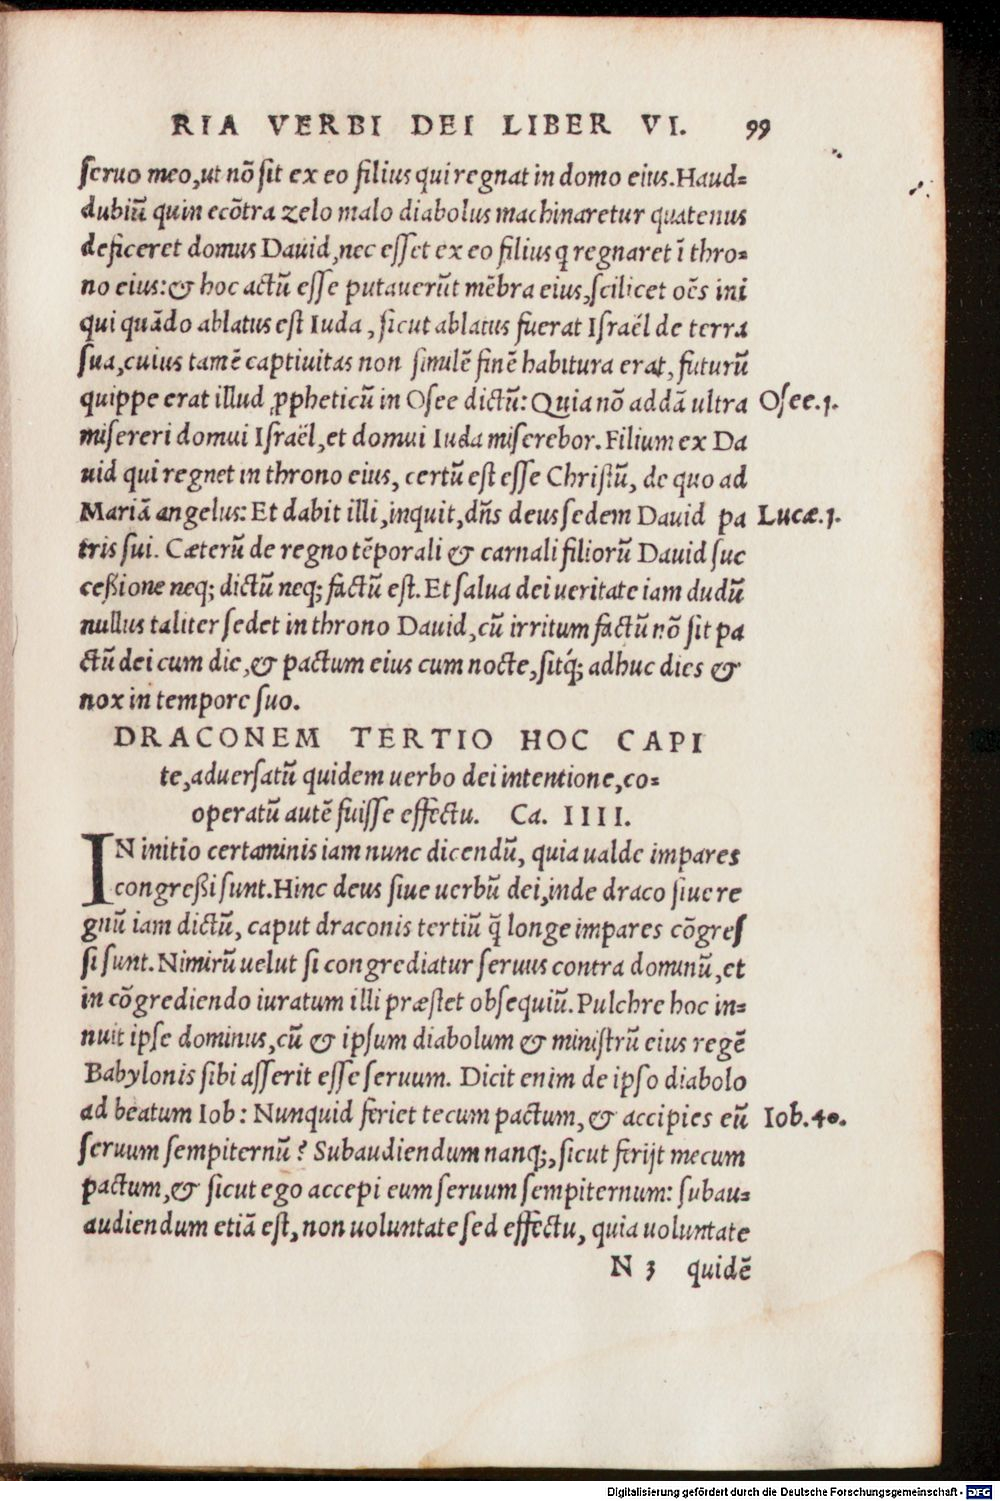 RIA VERBI DEI LIBER VI. 99
seruo meo,ut nõ sit ex eo filius qui regnat in domo eius.Haud=
dubiũ quin ecõtra zelo malo diabolus machinaretur quatenus
deficeret domus Dauid,nec esset ex eo filius q regnaret ĩ thro=
no eius:& hoc actũ esse putauerũt mẽbra eius,scilicet oẽs ini
qui quãdo ablatus est Iuda, sicut ablatus fuerat Israël de terra
sua,cuius tamẽ captiuitas non similẽ finẽ habitura erat, futurũ
quippe erat illud ꝓpheticũ in Osee dictũ: Quia nõ addã ultra Osee.1.
misereri domui Israël,et domui Iuda miserebor. Filium ex Da
uid qui regnet in throno eius, certũ est esse Christũ, de quo ad
Mariã angelus: Et dabit illi,inquit,dñs deus sedem Dauid pa Lucæ.1.
tris sui. Cæterũ de regno tẽporali & carnali filiorũ Dauid suc
ceßione neq; dictũ neq; factũ est. Et salua dei ueritate iam dudũ
nullus taliter sedet in throno Dauid,cũ irritum factũ nõ sit pa
ctũ dei cum die,& pactum eius cum nocte,sitq́; adhuc dies &
nox in tempore suo.
DRACONEM TERTIO HOC CAPI
te,aduersatũ quidem uerbo dei intentione,co=
operatũ autẽ fuisse effectu. Ca. IIII.
IN initio certaminis iam nunc dicendũ, quia ualde impares
congreßi sunt.Hinc deus siue uerbũ dei,inde draco siue re
gnũ iam dictũ, caput draconis tertiũ q̃ longe impares cõgres
si sunt. Nimirũ uelut si congrediatur seruus contra dominũ,et
in cõgrediendo iuratum illi præstet obsequiũ. Pulchre hoc in=
nuit ipse dominus,cũ & ipsum diabolum & ministrũ eius regẽ
Babylonis sibi asserit esse seruum. Dicit enim de ipso diabolo
ad beatum Iob: Nunquid feriet tecum pactum,& accipies eũ Iob.40.
seruum sempiternũ? Subaudiendum nanq;,sicut ferijt mecum
pactum,& sicut ego accepi eum seruum sempiternum: subau=
audiendum etiã est, non uoluntate sed effectu, quia uoluntate
N 3 quidẽ
Digitalisierung gefördert durch die Deutsche Forschungsgemeinschaft - DFG